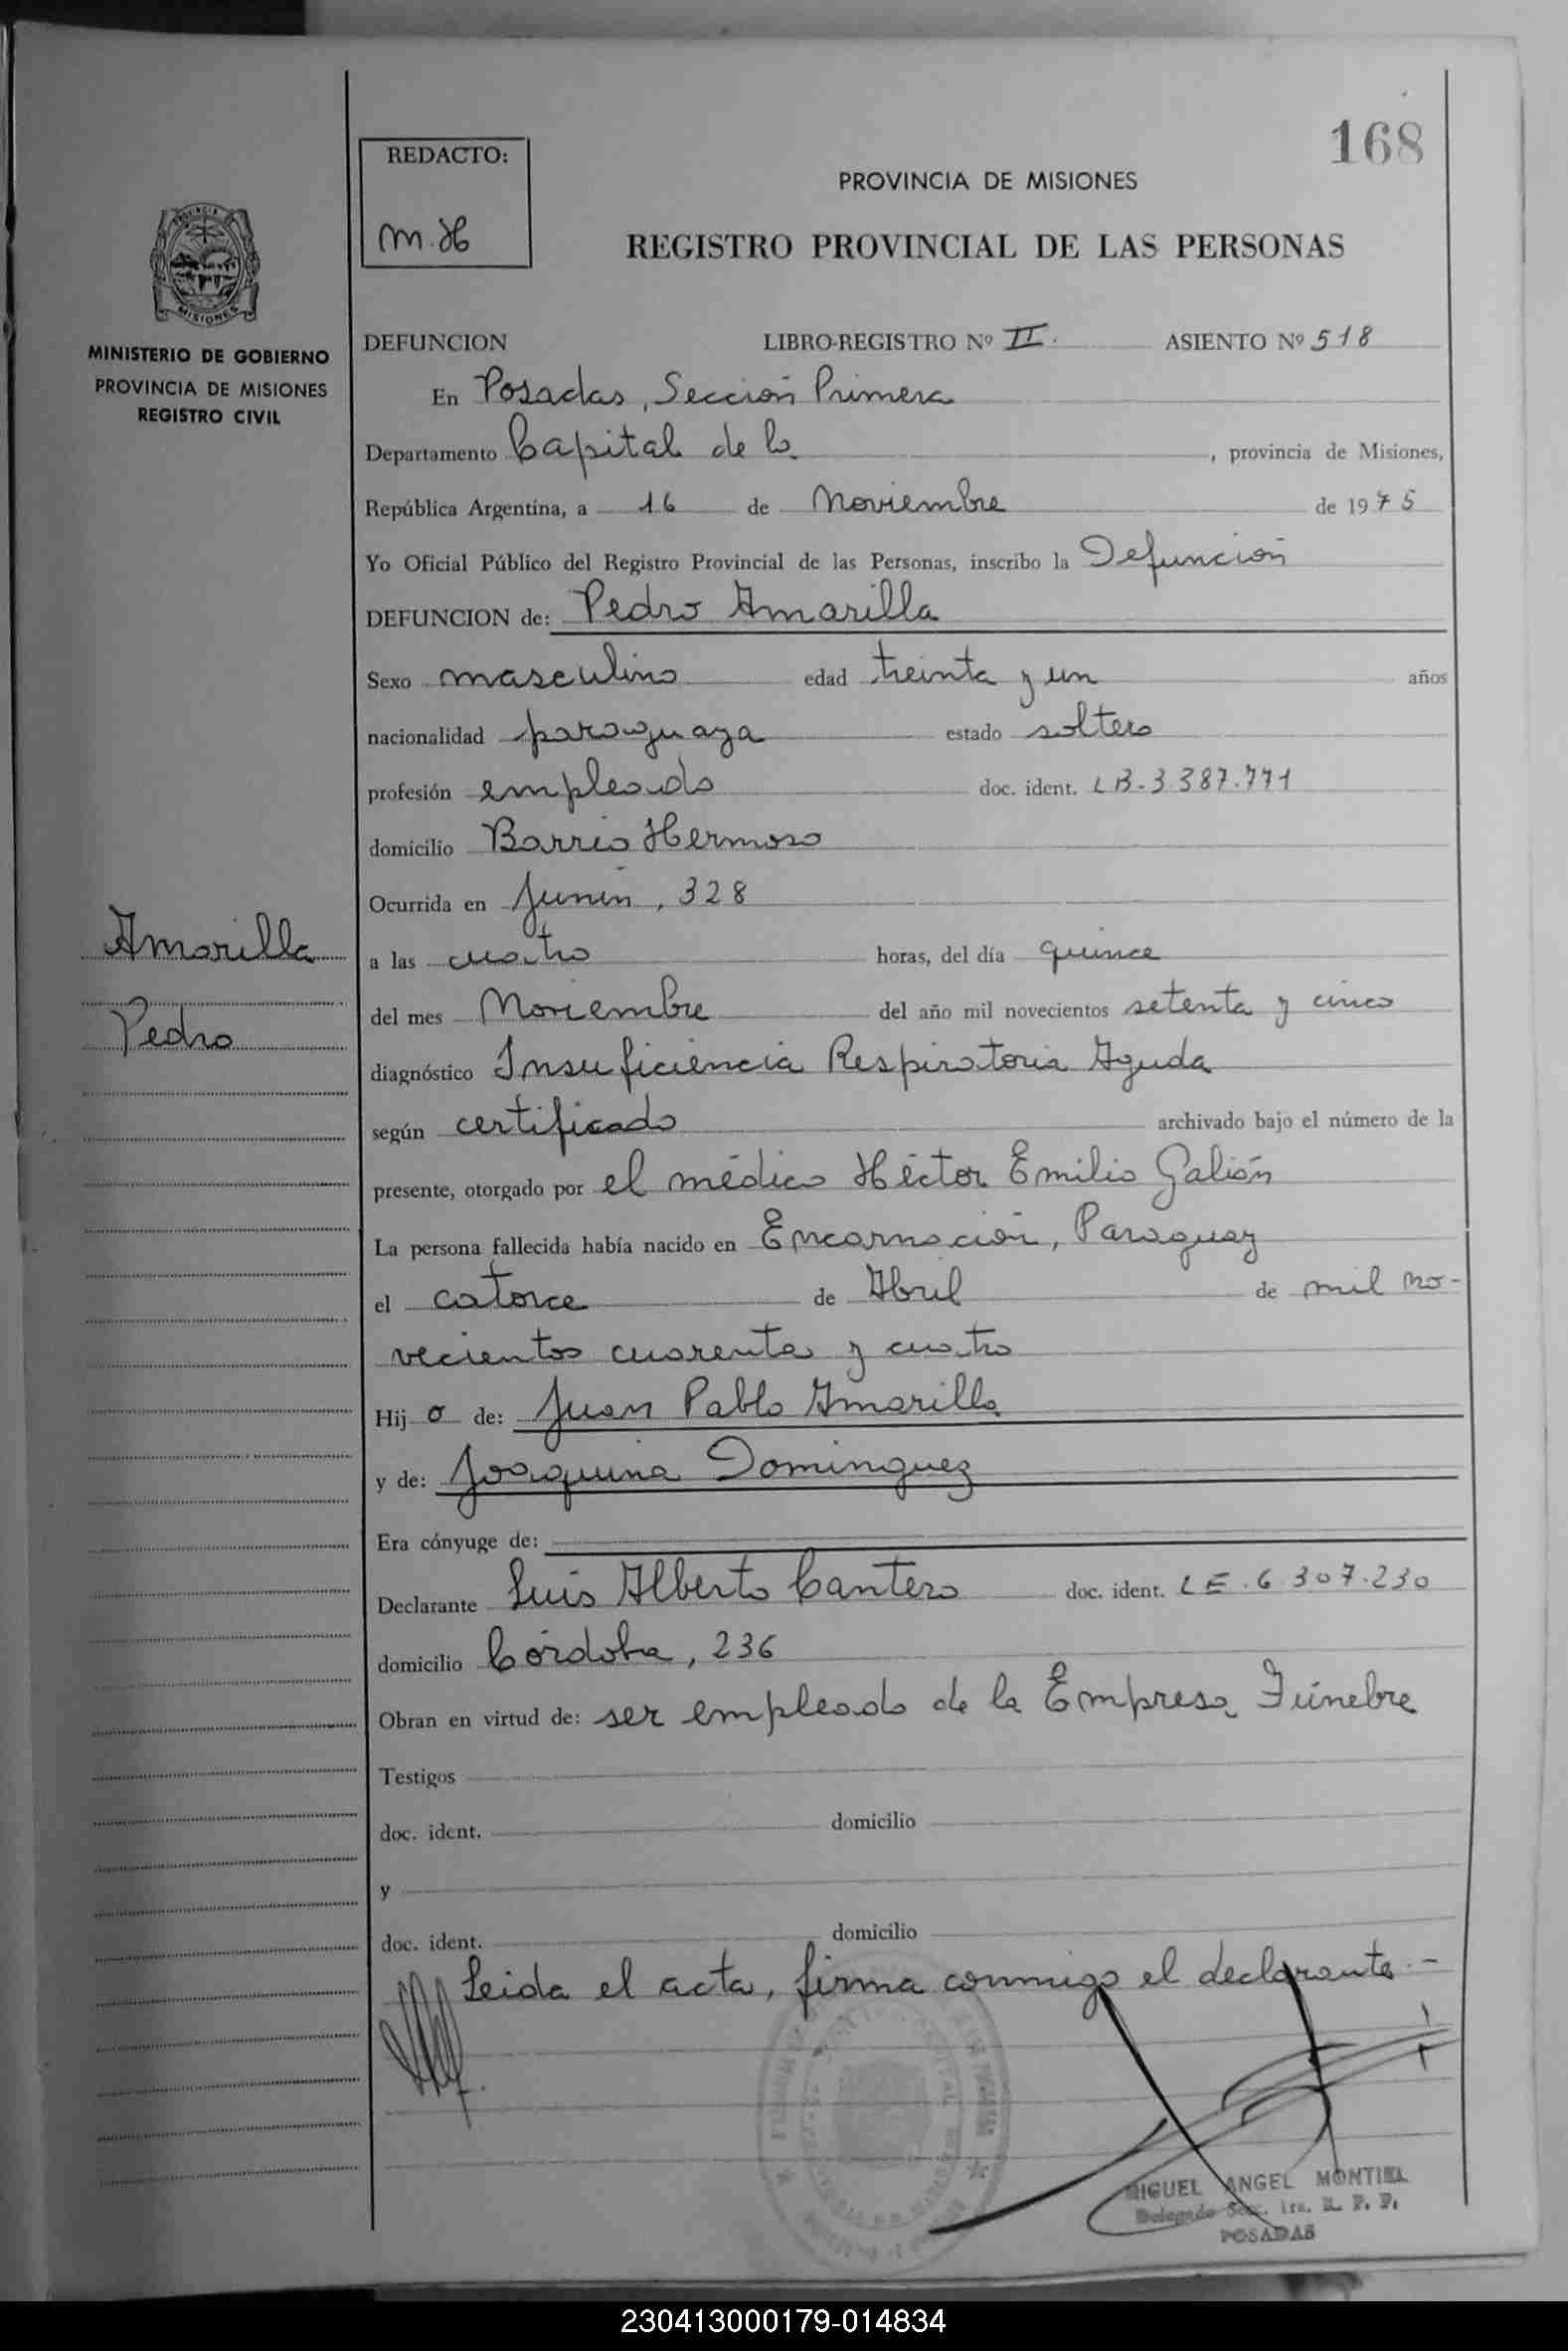 168
REDACTO:
M.H
PROVINCIA DE MISIONES
REGISTRO PROVINCIAL DE LAS PERSONAS
MISIONES
MINISTERIO DE GOBIERNO
PROVINCIA DE MISIONES
REGISTRO CIVIL
DEFUNCION LIBRO-REGISTRO Nº II. ASIENTO Nº 518
En Posadas, Sección Primera
Departamento Capital de la, provincia de Misiones,
República Argentina, a 16 de Noviembre de 1975
Yo Oficial Público del Registro Provincial de las Personas, inscribo la Defunción
DEFUNCION de: Pedro Amarilla
Sexo masculino edad treinta y un años
nacionalidad paraguaya estado soltero
profesión empleado doc. ident. LB-3 387.771
domicilio Barrio Hermoso
Ocurrida en Junín, 328
Amarilla
Pedro
a las cuatro horas, del día quince
del mes Noviembre del año mil novecientos setenta y cinco
diagnóstico Insuficiencia Respiratoria Aguda
según certificado archivado bajo el número de la
presente, otorgado por el médico Héctor Emilio Galión
La persona fallecida había nacido en Encarnación, Paraguay
el catorce de Abril de mil no-
vecientos cuarenta y cuatro
Hij o de: Juan Pablo Amarilla
y de: Joaquina Dominguez
Era cónyuge de:
Declarante Luis Alberto Cantero doc. ident. LE.6 307.230
domicilio Córdoba, 236
Obran en virtud de: ser empleado de la Empresa Fúnebre
Testigos
doc. ident. domicilio
y
doc. ident. domicilio
Leida el acta, firma conmigo el declarante.-
MIGUEL ANGEL MONTIEL
Delegado Secc. 1ra. R. P. P.
POSADAS
230413000179-014834